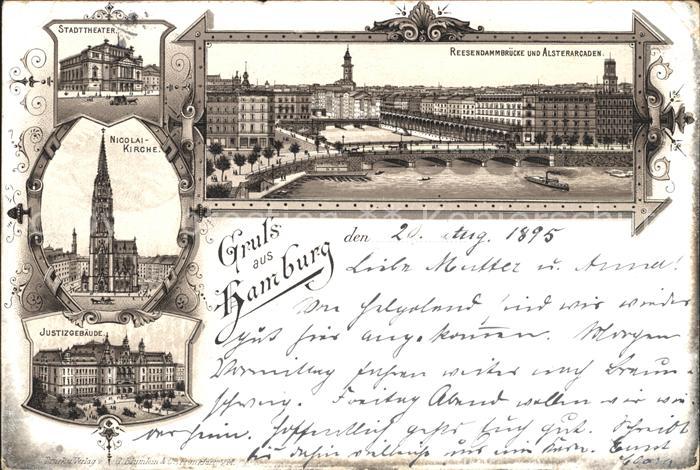 STADTTHEATER.
REESENDAMMBRÜCKE UND ALSTERARCADEN.
NICOLAI-
KIRCHE.
JUSTIZGEBÄUDE.
Gruss
aus
Hamburg
den 20. Aug. 1895
Liebe Mutter u. Anna!
Von Helgoland sind wir wieder
gut hier angekommen. Morgen
Vormittag fahren weiter nach Braun-
schweig. Freitag Abend wollen wir wie-
der heim. Hoffentlich geht's Euch gut. Schreibt
bis dahin vielleicht uns eine Karte.